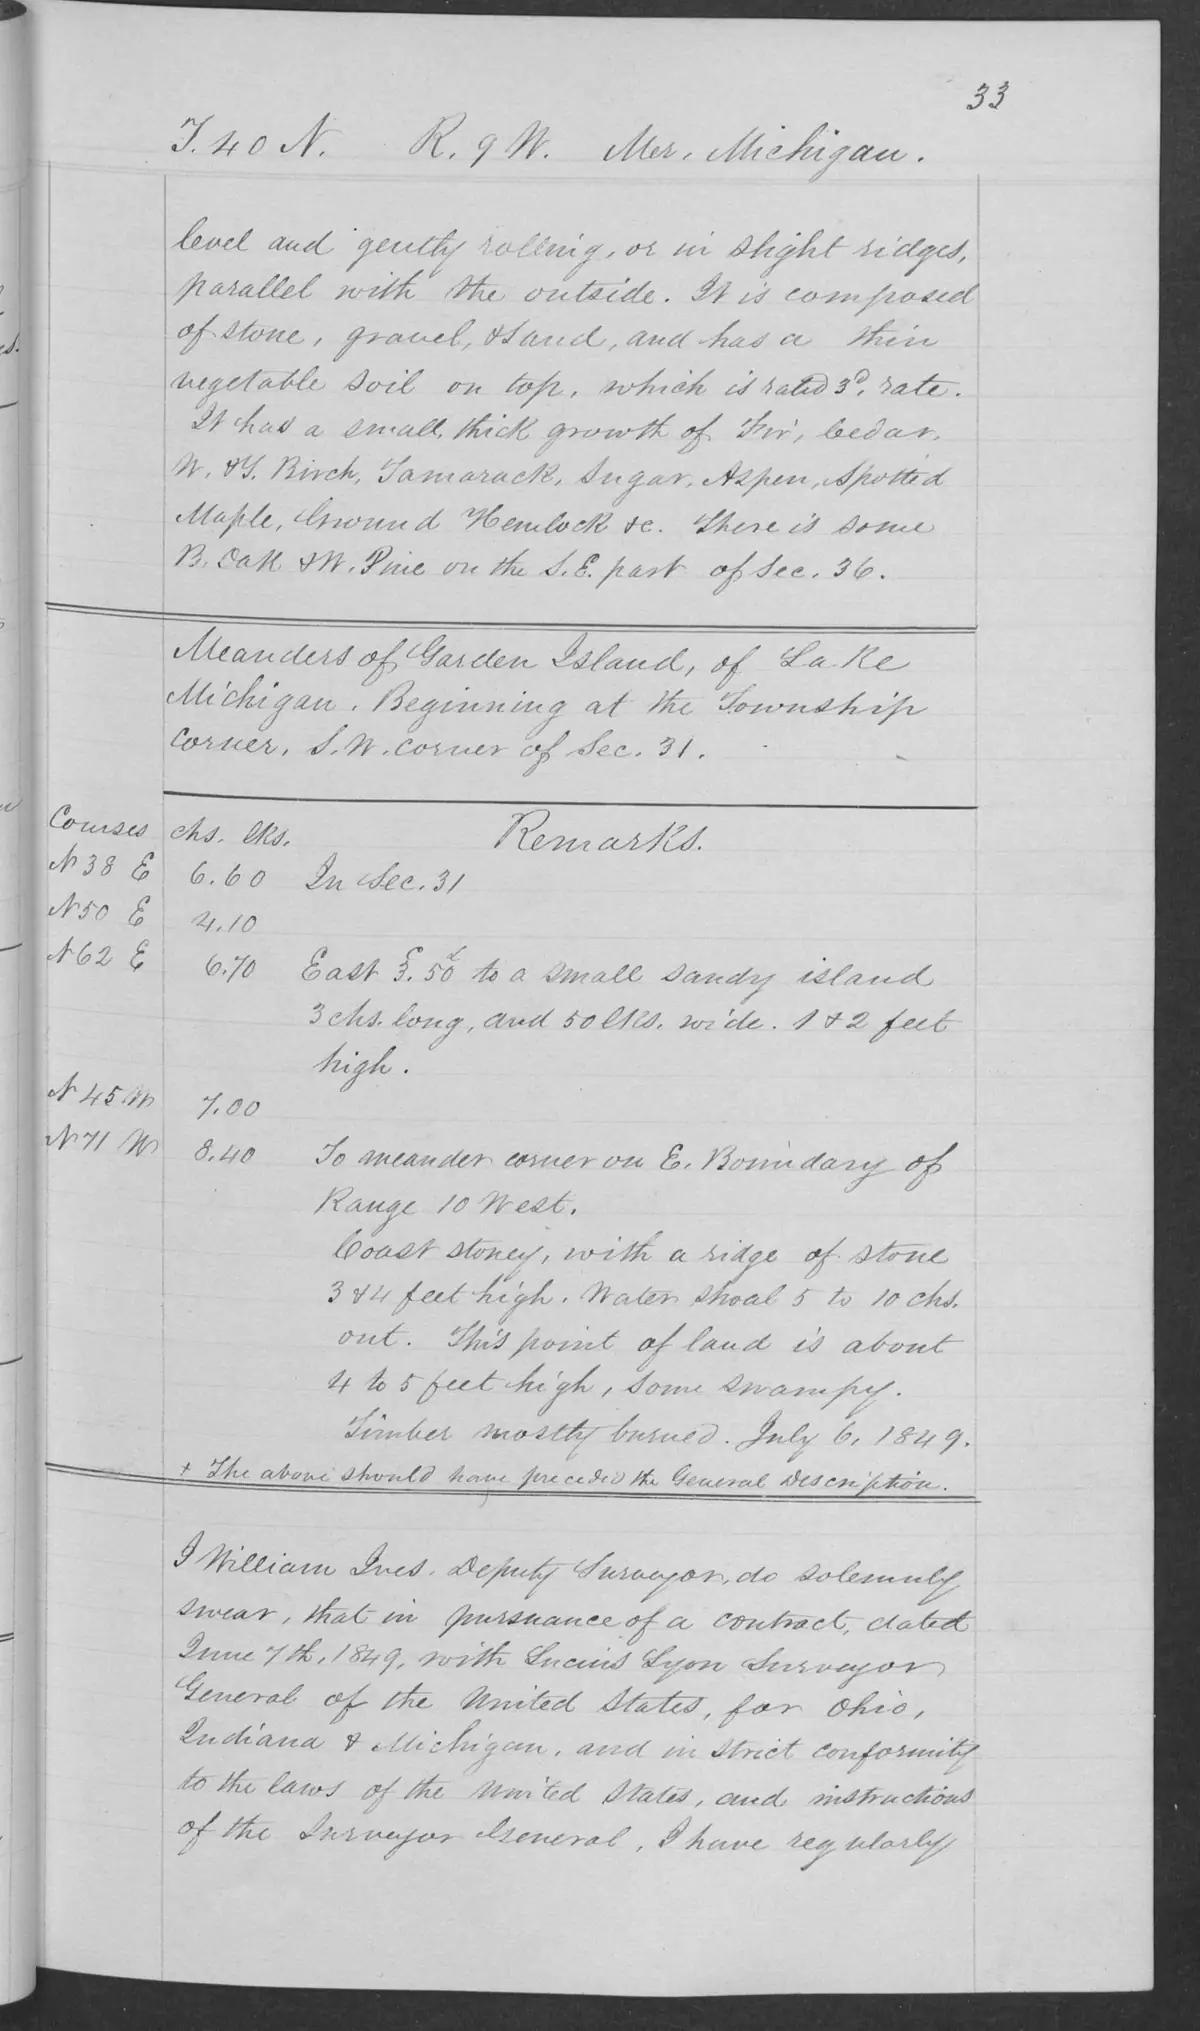 33
T. 40 N. R. 9 W. Mer. Michigan.
level and gently rolling, or in slight ridges,
parallel with the outside. It is composed
of stone, gravel, & sand, and has a thin
vegetable soil on top, which is rated 3d. rate.
It has a small, thick growth of Fir, Cedar,
W. & Y. Birch, Tamarack, Sugar, Aspen, Spotted
Maple, Ground Hemlock &c. There is some
B. Oak & W. Pine on the S.E. part of Sec. 36.
Meanders of Garden Island, of Lake
Michigan. Beginning at the Township
corner, S.W. corner of Sec. 31.
Courses chs. lks. Remarks.
N 38 E 6.60 In Sec. 31
N 50 E 4.10
N 62 E 6.70 East 3.c 50l to a small sandy island
3 chs. long, and 50 lks. wide. 1 & 2 feet
high.
N 45 W 7.00
N 71 W 8.40 To meander corner on E. Boundary of
Range 10 West.
Coast stoney, with a ridge of stone
3 & 4 feet high. Water shoal 5 to 10 chs.
out. This point of land is about
4 to 5 feet high, some swampy.
Timber mostly burned. July 6, 1849.
+ The above should have preceded the General Description.
I William Ives, Deputy Surveyor, do solemnly
swear, that in pursuance of a contract, dated
June 7th, 1849, with Lucius Lyon Surveyor
General of the United States, for Ohio,
Indiana & Michigan, and in strict conformity
to the laws of the United States, and instructions
of the Surveyor General, I have regularly